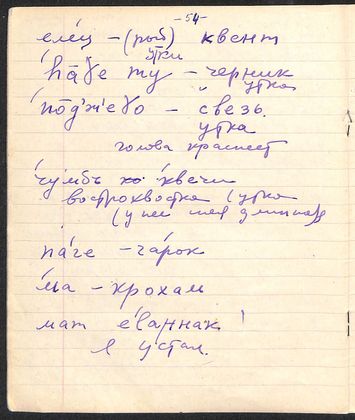 -54-
еле́ц - (рыб) квент
утки
ћа̄ɣе ту - черник
утка
по̄д'жеɣо - свезь.
утка
голова краснеет
чумбъ хо квечи
вострохвостка (утка
(у неё шея длинная
па́ге - ча́рок
ма - крохам
мат е́ваннак!
я устал.